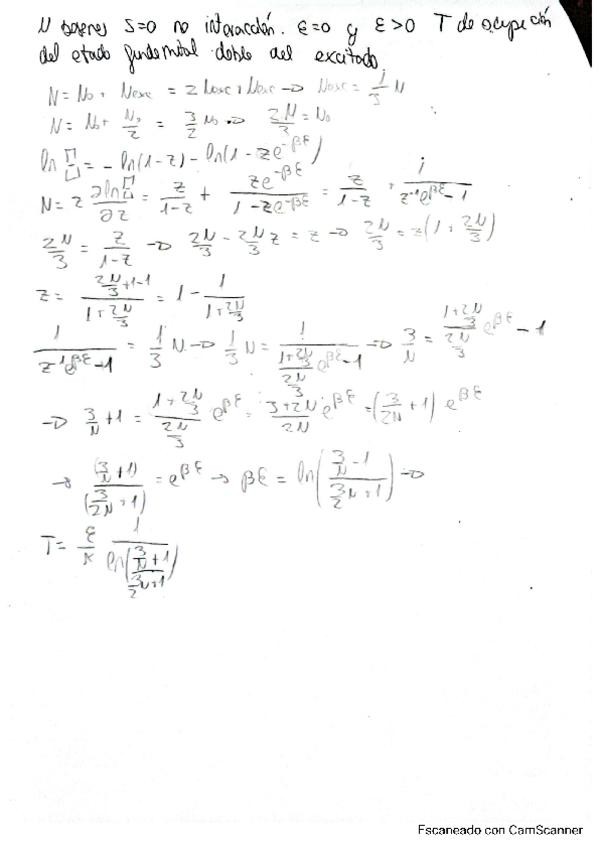 N bosones S=0 no interacción. ε=0 y ε>0 T de ocupación
del estado fundamental doble del excitado
N = N₀ + Nexc = 2 Nexc + Nexc → Nexc = 1/3 N
N = N₀ + N₀/2 = 3/2 N₀ → 2N/3 = N₀
ln Ξ = - ln(1-z) - ln(1 - ze^-βε)
N = z ∂lnΞ/∂z = z/(1-z) + ze^-βε/(1-ze^-βε) = z/(1-z) + 1/(z⁻¹e^βε - 1)
2N/3 = z/(1-z) → 2N/3 - 2N/3 z = z → 2N/3 = z(1 + 2N/3)
z = (2N/3 + 1 - 1)/(1 + 2N/3) = 1 - 1/(1 + 2N/3)
1/(z⁻¹e^βε - 1) = 1/3 N → 1/3 N = 1/((1+2N/3)/(2N/3) e^βε - 1) → 3/N = (1+2N/3)/(2N/3) e^βε - 1
→ 3/N + 1 = (1+2N/3)/(2N/3) e^βε = (3+2N)/2N e^βε = (3/2N + 1) e^βε
→ (3/N + 1)/(3/2N + 1) = e^βε → βε = ln((3/N - 1)/(3/2N + 1)) →
T = ε/K 1/ln((3/N + 1)/(3/2N + 1))
Escaneado con CamScanner